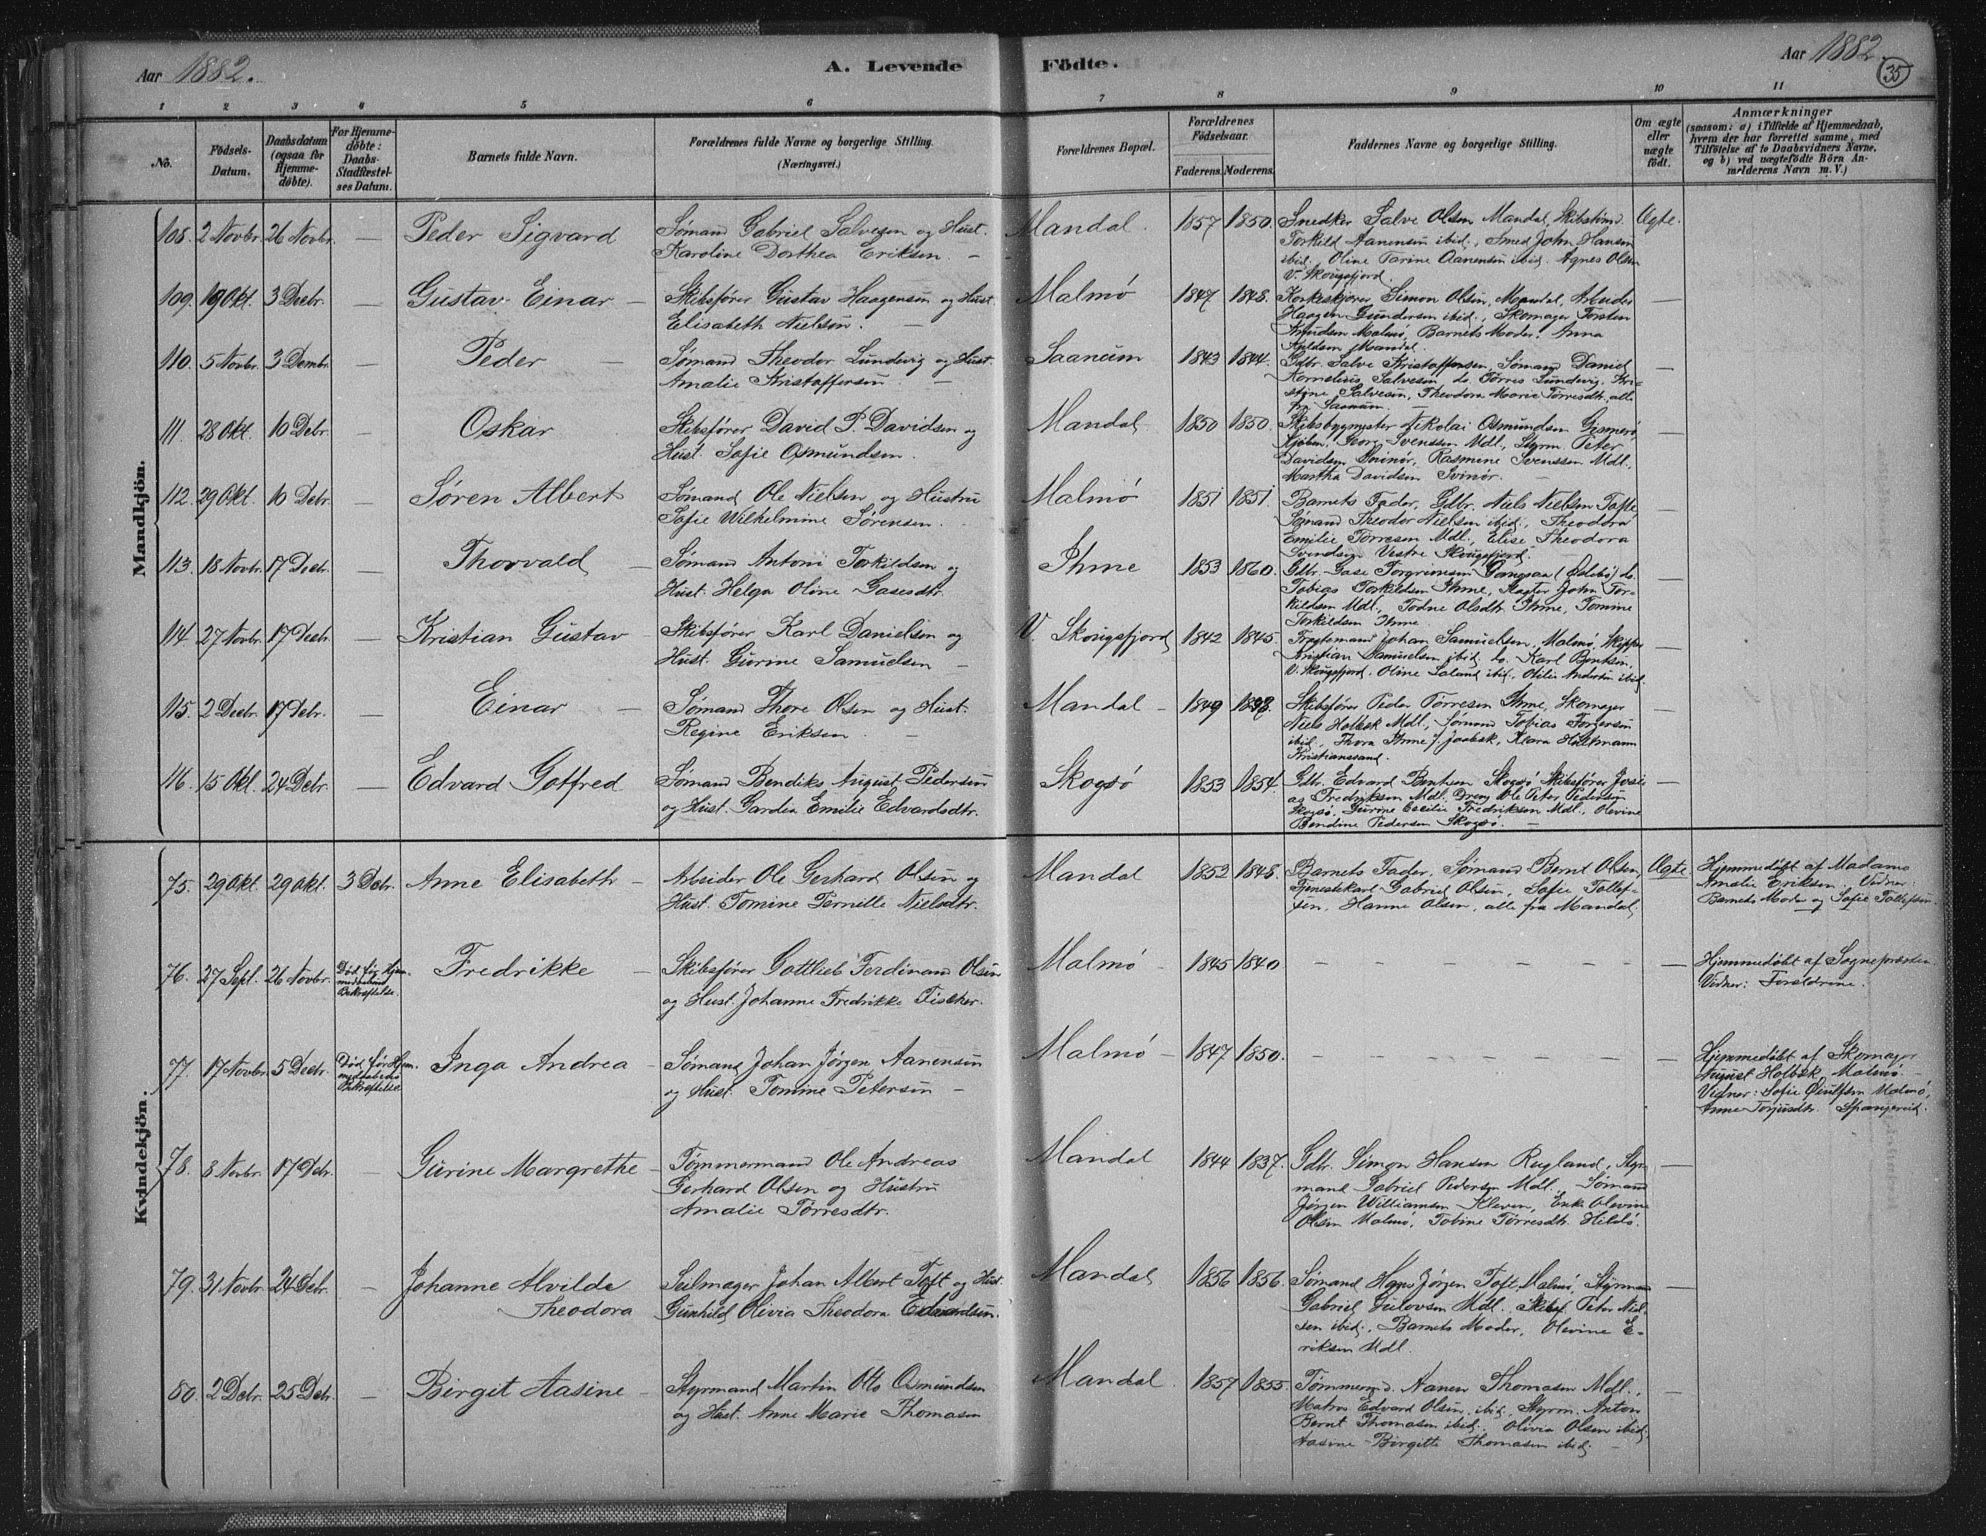 Aar 1882.
A. Levende Födte.
Aar 1882.
35
1 2 3 4 5 6 7 8 9 10 11
No.
Födsels-Datum.
Daabsdatum (ogsaa for Hjemmedöbte).
For Hjemmedöbte: Daabs-Stadfæstelses Datum.
Barnets fulde Navn.
Forældrenes fulde Navne og borgerlige Stilling. (Næringsvei.)
Forældrenes Bopæl.
Forældrenes Födselsaar.
Faderens. Moderens.
Faddernes Navne og borgerlige Stilling.
Om ægte eller uægte födt.
Anmærkninger
(saasom: a) i Tilfælde af Hjemmedaab, hvem der har forrettet samme, med Tilföielse af to Daabsvidners Navne, og b) ved uægtefödte Börn Anmelderens Navn m. V.)
Mandkjön.
108. 2 Novbr. 26 Novbr. — Peder Sigvard
Sømand Gabriel Salvesen og Hust.
Karoline Dorthea Eriksen.
Mandal. 1857 1850.
Snedker Salve Olsen Mandal, Skibstømd.
Torkild Aanensen ibid., Smed John Hansen
ibid. Oline Tarine Aanensen ibid. Agnes Olsen
V. Skougsfjord.
Ægte.
109. 19 Okt. 3 Decbr. — Gustav Einar —
Skibsfører Gustav Haagensen og Hust.
Elisabeth Nielsen.
Malmø 1847 1848.
Simon Olsen, Mandal, Arbeider
Haagen Gundersen ibid., Skomager Torsten
Knudsen Malmø, Barnets Moder, Anna
Mandal.
110. 5 Novbr. 3 Decmbr. — Peder —
Sømand Theodor Lundevig og Hust.
Amalie Kristoffersen.
Saanum 1843 1844.
Gdbr. Salve Kristoffersen, Sømand Daniel
Kornelius Salvesen, do. Tørres Lundevig, Kristine
Salvesen, Theodora Marie Tørresdtr, alle
fra Saanum.
111. 28 Okt. 10 Debr. — Oskar
Skibsfører David P. Davidsen og
Hust. Sofie Osmundsen.
Mandal 1850 1850.
Skibsbygmester Nikolai Osmundsen Gismerø,
Kjøbm. Georg Svenssen Mdl., Styrm. Peter
Davidsen Svinør, Rasmine Svenssen Mdl.,
Martha Davidsen Svinør.
112. 29 Okt. 10 Debr. — Søren Albert
Sømand Ole Nielsen og Hustru
Sofie Wilhelmine Sørensen.
Malmø 1851 1851.
Barnets Fader, Gdbr. Niels Nielsen Tofte,
Sømand Theodor Nielsen ibid., Theodora
Emilie Tørresen Mdl., Elise Theodora
Svendsen Vestre Skougsfjord.
113. 18 Novbr. 17 Decbr. — Thorvald —
Sømand Antoni Torkildsen og
Hust. Helga Oline Gasesdtr.
Ihme 1853 1860.
Gdbr. Gase Torgrimsen (Øslebø) do.
Tobias Torkildsen Ihme, John Torkildsen
Mdl., Todne Olsdtr. Ihme, Tomine
Torkildsen Ihme.
114. 27 Novbr. 17 Decbr. — Kristian Gustav —
Skibsfører Karl Danielsen og
Hust. Gurine Samuelsen —
V. Skougsfjord 1842 1845.
Johan Samuelsen, Malmø, Skipper
Kristian Samuelsen ibid, do. Karl Bentsen,
V. Skougsfjord, Oline Saland ibid., Otilie Andersen ibid.
115. 2 Decbr. 17 Debr. — Einar —
Sømand Thore Olsen og Hust.
Regine Eriksen.
Mandal — 1849 1848.
Skibsfører Peder Tørresen Ihme, Skomager
Niels Holbæk Mdl., Sømand Tobias Torgersen
ibid., Thora Ihme f. Jaabæk, Klara Holtemann
Kristianssand.
116. 15 Okt. 24 Debr. — Edvard Gotfred
Sømand Bendiks August Pedersen
og Hust. Gardea Emilie Edvardsdtr.
Skogsø 1853 1854.
Gdbr. Edvard Bentsen Skogsø, Skibsfører Josias
Fredriksen Mdl., Dreng Ole Peter Pedersen
Skogsø, Gurine Cecilie Fredriksen Mdl., Olevine
Bendine Pedersen Skogsø.
Kvindekjön.
75. 29 Okt. 29 Okt. 3 Debr. Anne Elisabeth —
Arbeider Ole Gerhard Olsen og
Hust. Tomine Pernille Nielsdtr.
Mandal 1852 1848.
Barnets Fader, Sømand Bernt Olsen,
Tjenestekarl Gabriel Olsen, Sofie Tollefsen,
Hanne Olsen, alle fra Mandal.
Ægte
Hjemmedøbt af Madame
Amalie Eriksen. Vidner:
Barnets Moder og Sofie Tollefsen.
76. 27 Sept. 26 Novbr. Død før Hjemmedaabens Bekræftelse. Fredrikke —
Skibsfører Gottlieb Ferdinand Olsen
og Hust. Johanne Fredrikke Fischer.
Malmø — 1845 1840
Hjemmedøbt af Sognepræsten.
Vidner: Forældrene.
77. 17 Novbr. 5 Decbr. Død før Hjemmedaabens Bekræftelse. Inga Andrea —
Sømand Johan Jørgen Aanensen
og Hust. Tomine Petersen —
Malmø — 1847 1850.
Hjemmedøbt af Skomager
August Holbæk, Malmø.
Vidner: Sofie Malmø,
Anne Torjusdtr. Spangereid.
78. 8 Novbr. 17 Debr. — Gurine Margrethe —
Tømmermand Ole Andreas
Gerhard Olsen og Hustru
Amalie Tørresdtr.
Mandal 1844 1837.
Gdbr. Simon Hansen Rugland, Styrmand
Gabriel Pedersen Mdl. Sømand
Jørgen Williamsen Kleven, Enke Olevine
Olsen Malmø, Tobine Tørresdtr. Hilslø.
79. 31 Novbr. 24 Debr. — Johanne Alvilde
Theodora
Seilmager Johan Albert Toft og Hust.
Gunhild Olivia Theodora Edvardsen.
Mandal 1856 1856.
Sømand Hans Jørgen Toft Malmø, Styrman
Gabriel Gulovsen Mdl. Skibsf. Peter Nielsen
ibid., Barnets Moder, Olevine Eriksen
Mdl.
80. 2 Debr. 25 Debr. — Birgit Aasine —
Styrmand Martin Otto Osmundsen
og Hust. Anne Marie Thomasen
Mandal. 1857 1855.
Tømmermd. Aanen Thomasen Mdl.,
Matros Edvard Olsen ibid, Styrm. Anton
Bernt Thomasen ibid., Olivia Olsen ibid,
Aasine Birgitte Thomasen ibid.